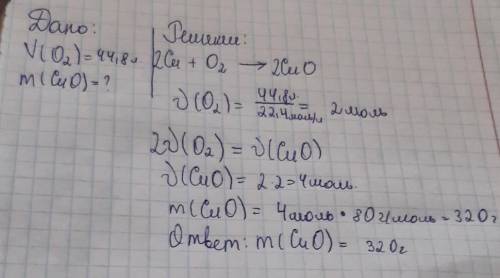 Дано:
V(O₂)=44,8л
m(CuO)=?
Решение:
2Cu + O₂ → 2CuO
ν(O₂) = 44,8л/22,4моль/л = 2 моль
2ν(O₂) = ν(CuO)
ν(CuO) = 2·2=4моль.
m(CuO) = 4моль · 80г/моль = 320г
Ответ: m(CuO) = 320г